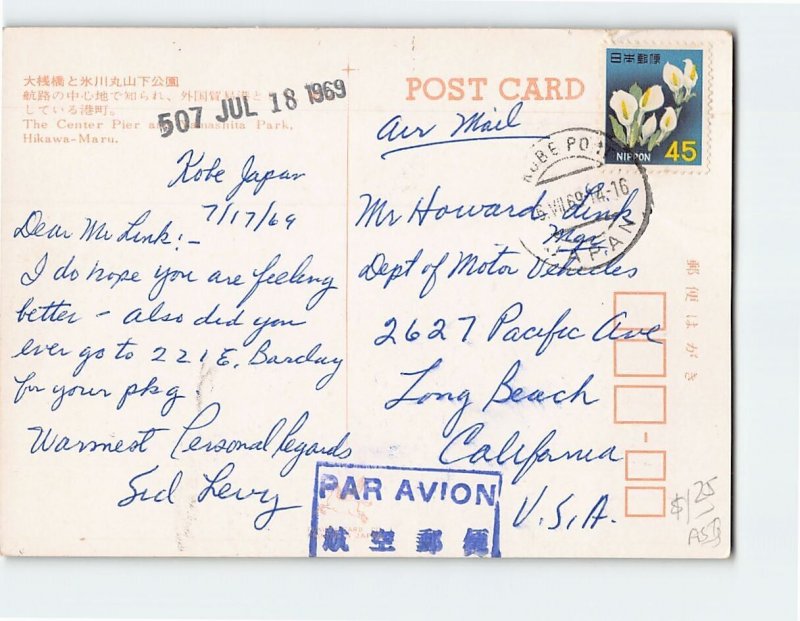 大桟橋と氷川丸山下公園
航路の中心地で知られ、外国貿易港と
している港町。
The Center Pier and Yamashita Park,
Hikawa-Maru.
507 JUL 18 1969
POST CARD
日本郵便
NIPPON 45
KOBE PORT
VII.69.14-16
JAPAN
Air Mail
Kobe Japan
7/17/69
Dear Mr Link:-
I do hope you are feeling
better - also did you
ever go to 221 E. Barclay
for your pkg.
Warmest Personal Regards
Sid Levy
Mr Howard Link
Mgr
Dept of Motor Vehicles
2627 Pacific Ave
Long Beach
California
U.S.A.
郵便はがき
PAR AVION
航空郵便
$1.25
ASB